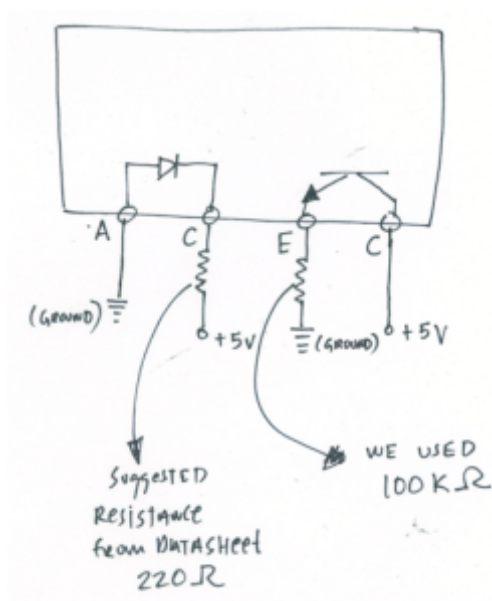 A
C
E
C
(GROUND)
+5V
(GROUND)
+5V
SuggesTED
ResisTance
from DATASHeeT
220Ω
WE USED
100KΩ